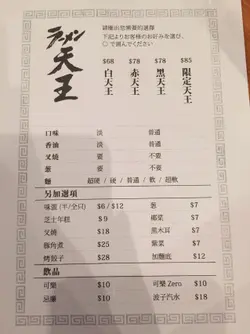 ラーメン天王
請圈出您需要的選擇
下記よりお客様のお好みを選び、
○で選んでください
$68 $78 $78 $85
白天王 赤天王 黒天王 限定天王
口味 淡 普通
香油 淡 普通
叉燒 要 不要
蔥 要 不要
麵 超硬 / 硬 / 普通 / 軟 / 超軟
另加選項
味蛋 (半/全只) $6 / $12 蔥 $7
芝士年糕 $9 $7
叉燒 $18 黑木耳 $7
豚角煮 $25 紫菜 $7
烤餃子 $28 加麵底 $12
飲品
可樂 $10 可樂 Zero $10
忌廉 $10 波子汽水 $18